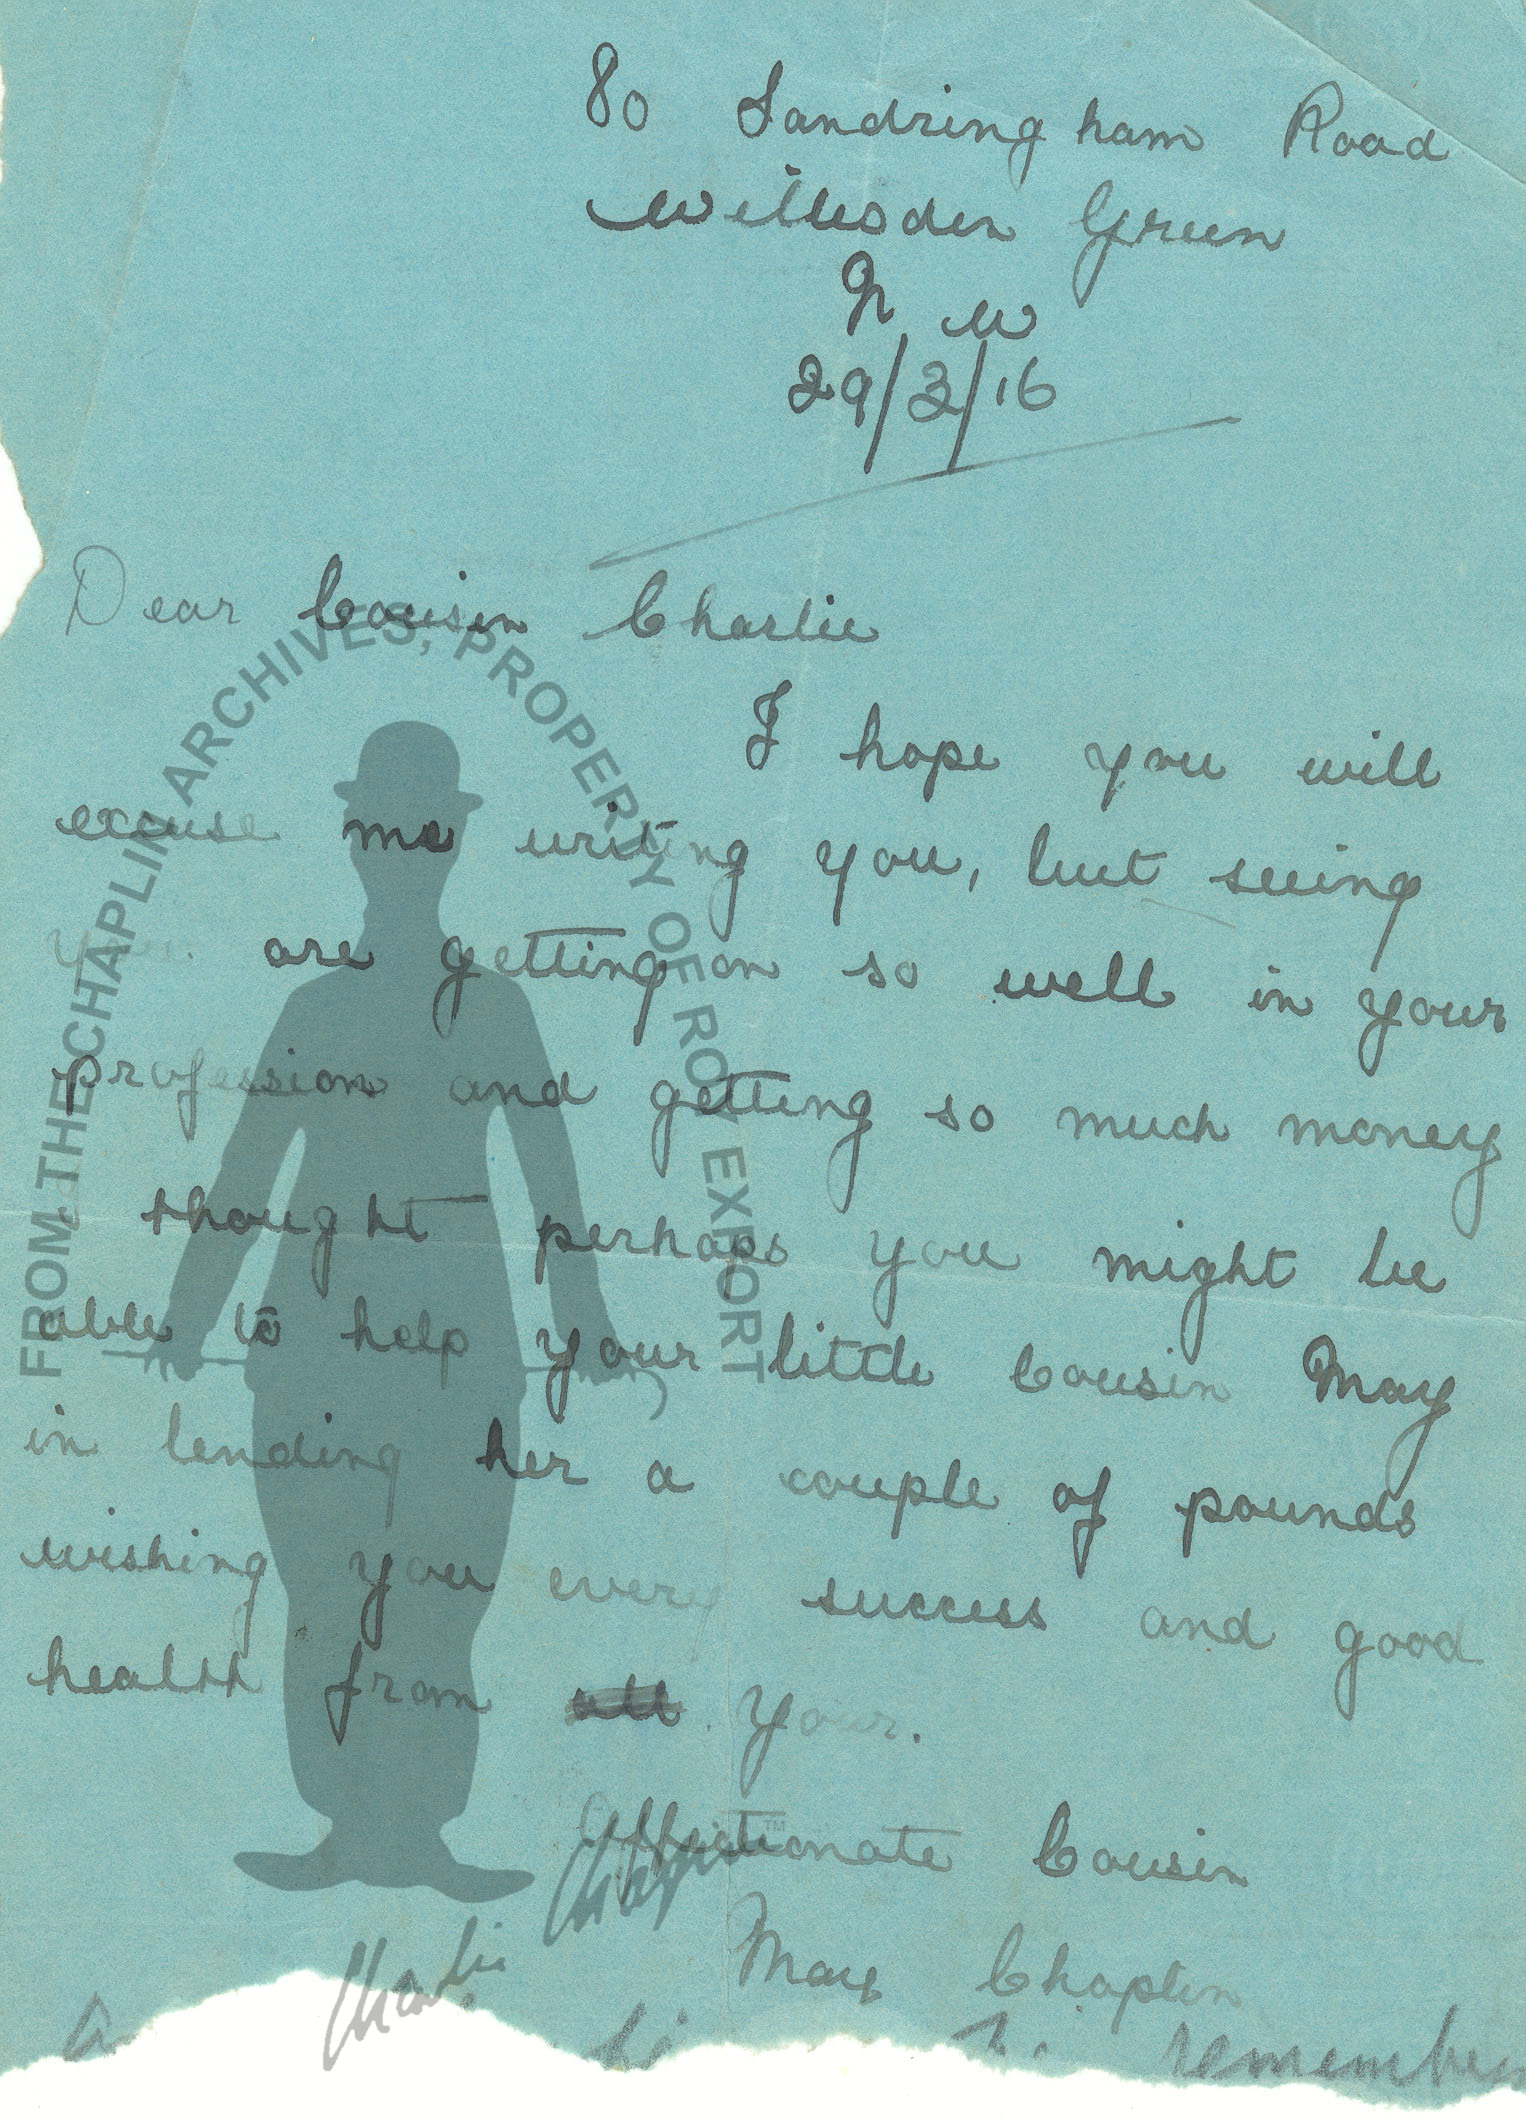 80 Sandringham Road
Willesden Green
N W
29/3/16
Dear Cousin Charlie
I hope you will
excuse me writing you, but seeing
you are getting on so well in your
profession and getting so much money
thought perhaps you might be
able to help your little Cousin May
in lending her a couple of pounds
wishing you every success and good
health from your.
Affectionate Cousin
May Chaplin
remember
FROM THE CHAPLIN ARCHIVES, PROPERTY OF ROY EXPORT
TM
Charlie Chaplin